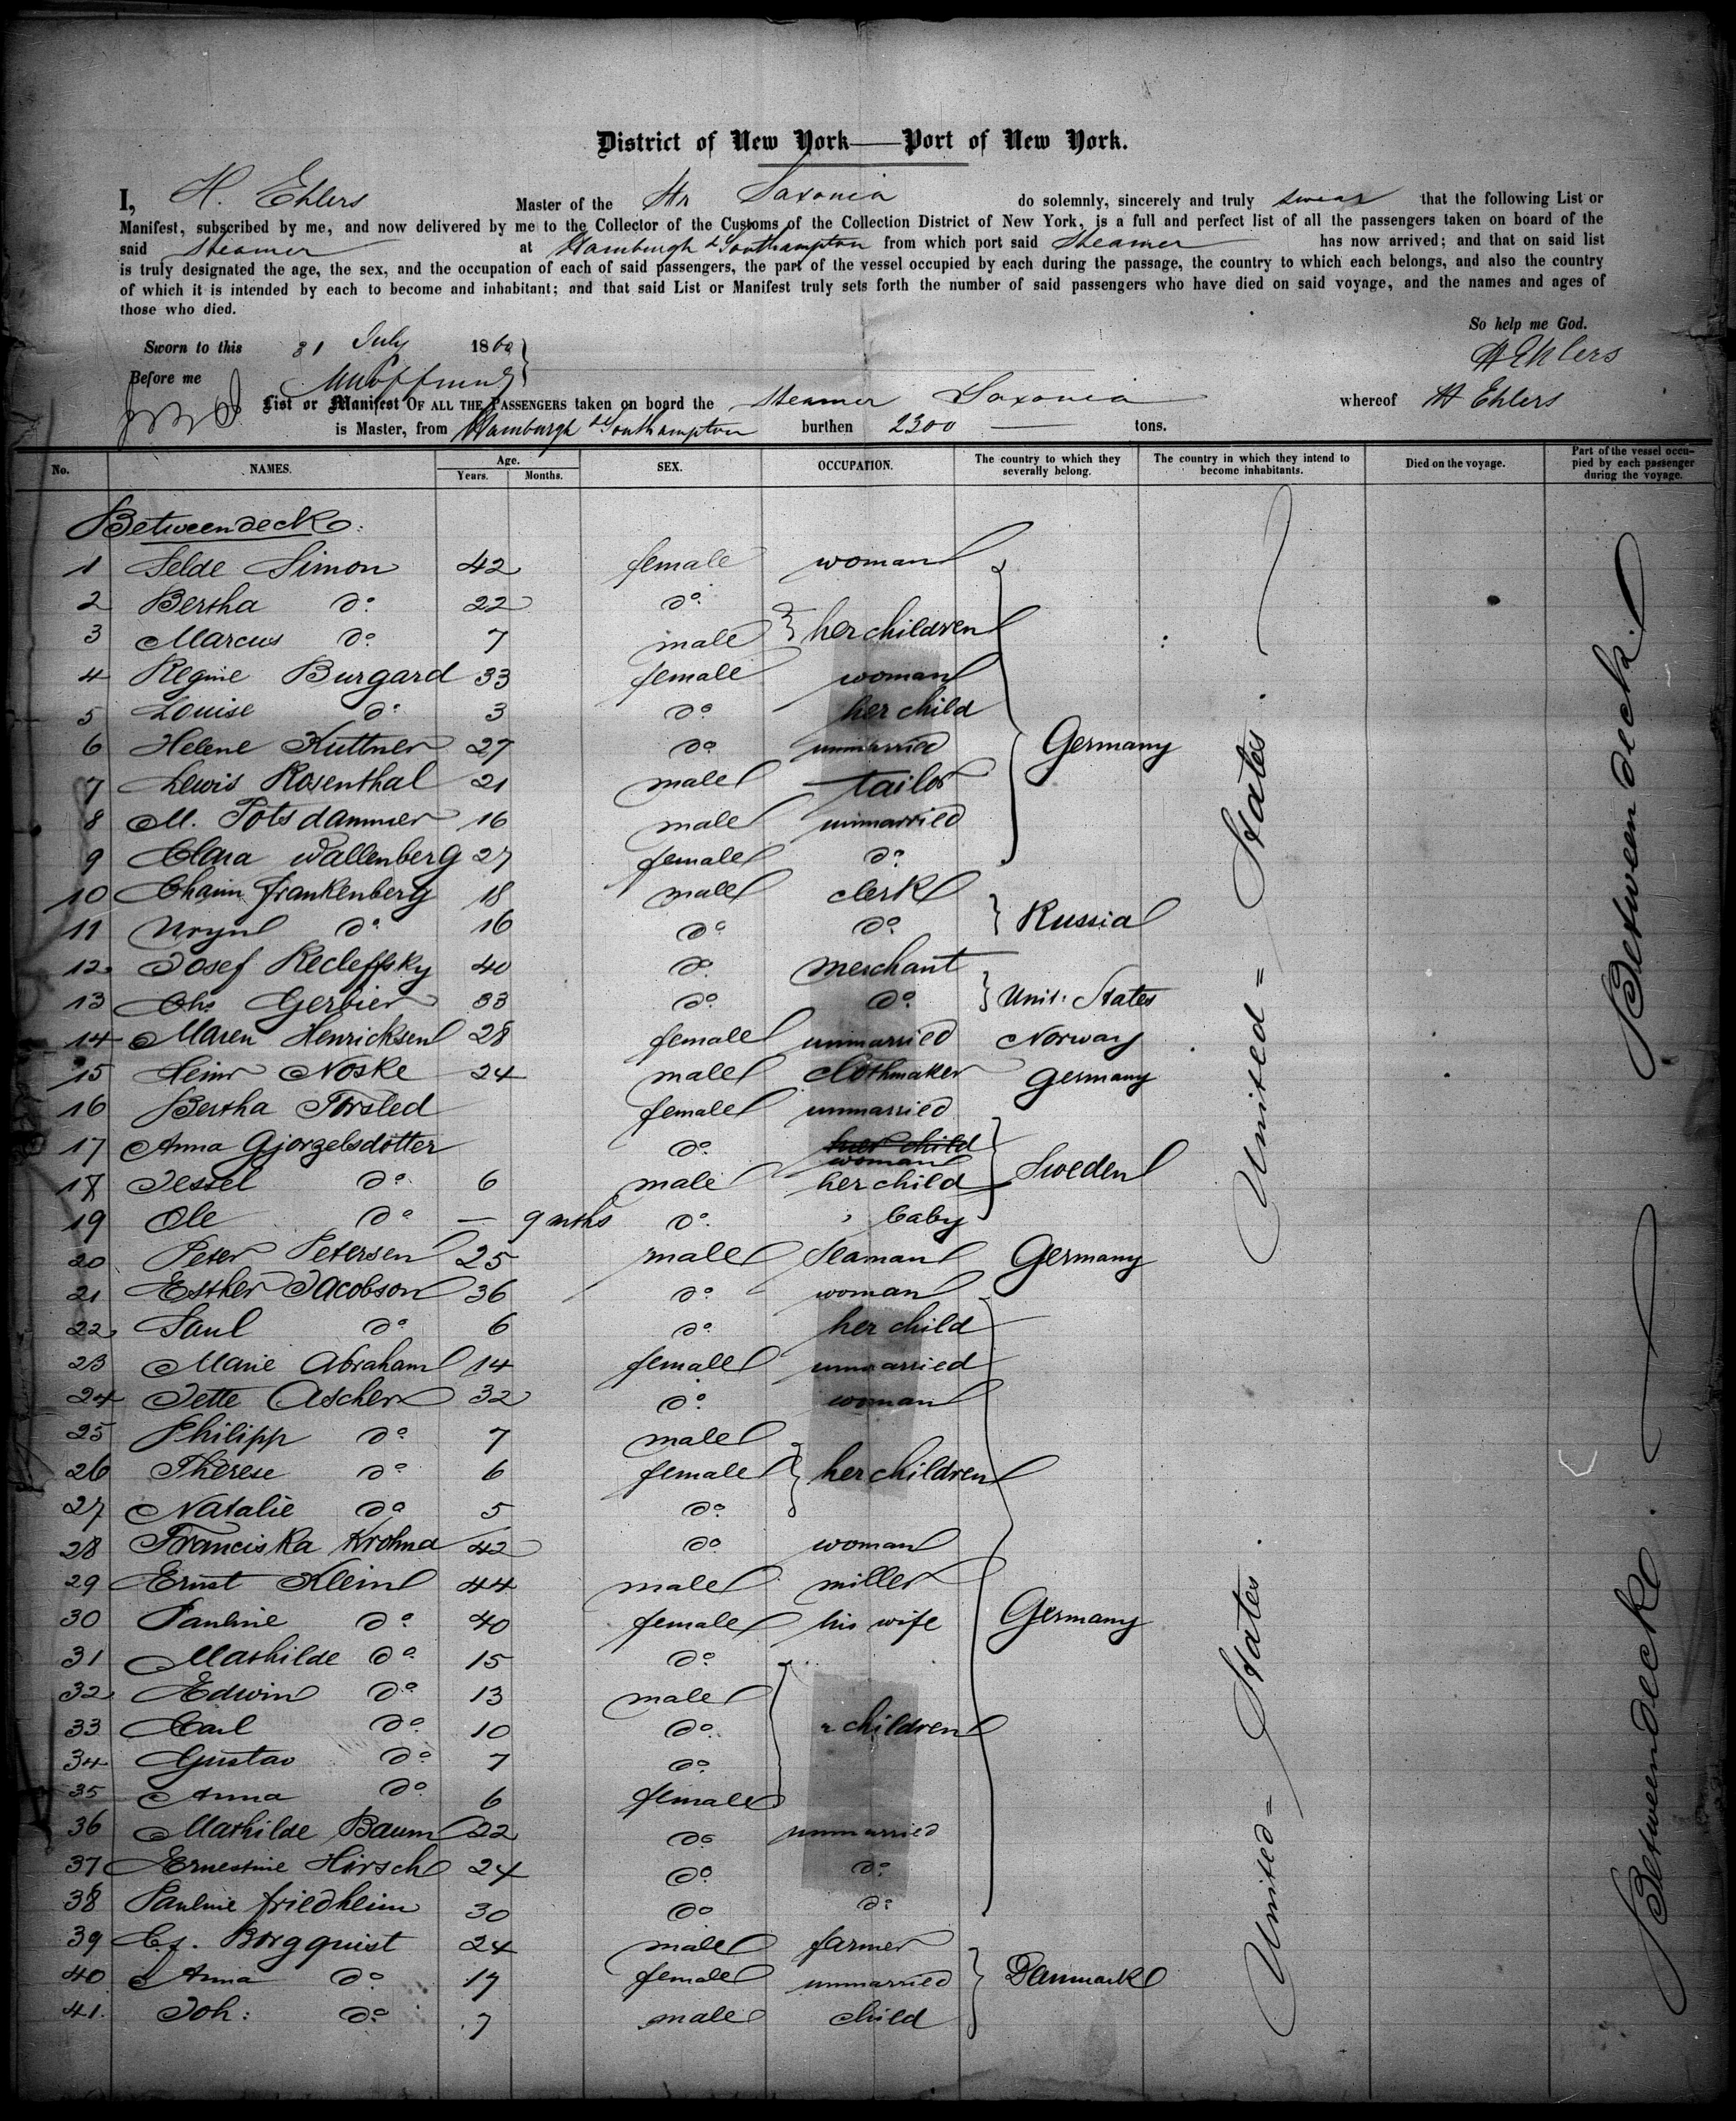 District of New York—Port of New York.
I, H. Ehlers Master of the Str Saxonia do solemnly, sincerely and truly swear that the following List or
Manifest, subscribed by me, and now delivered by me to the Collector of the Customs of the Collection District of New York, is a full and perfect list of all the passengers taken on board of the
said Steamer at Hamburgh & Southampton from which port said Steamer has now arrived; and that on said list
is truly designated the age, the sex, and the occupation of each of said passengers, the part of the vessel occupied by each during the passage, the country to which each belongs, and also the country
of which it is intended by each to become and inhabitant; and that said List or Manifest truly sets forth the number of said passengers who have died on said voyage, and the names and ages of
those who died.
So help me God.
Sworn to this 31 July 1860
H Ehlers
Before me
List or Manifest OF ALL THE PASSENGERS taken on board the Steamer Saxonia whereof H Ehlers
is Master, from Hamburgh & Southampton burthen 2300 tons.
No. NAMES. Age. Years. Months. SEX. OCCUPATION. The country to which they severally belong. The country in which they intend to become inhabitants. Died on the voyage. Part of the vessel occupied by each passenger during the voyage.
Betweendeck:
1 Selde Simon 42 female woman
2 Bertha do 22 do
3 Marcus do 7 male her children
4 Regine Burgard 33 female woman
5 Louise do 3 do her child
6 Helene Kuttner 27 do unmarried Germany
7 Lewis Rosenthal 21 male tailor
8 M. Potsdammer 16 male unmarried
9 Clara Wallenberg 27 female do
10 Chaim Frankenberg 18 male clerk
11 do 16 do do Russia
12 Josef Recleffsky 40 do merchant
13 Chs Gerbier 33 do do Unit. States
14 Maren Henricksen 28 female unmarried Norway
15 Heinr Noske 24 male clothmaker Germany
16 Bertha Torsled female unmarried
17 Anna Gjorzelsdotter do her child woman
18 Jessel do 6 male her child Sweden
19 Ole do — 9 mths do " baby
20 Peter Petersen 25 male Seaman Germany
21 Esther Jacobson 36 do woman
22 Saul do 6 do her child
23 Marie Abraham 14 female unmarried
24 Jette Ascher 32 do woman
25 Philipp do 7 male
26 Therese do 6 female her children
27 Natalie do 5 do
28 Franciska Krohna 42 do woman
29 Ernst Klein 44 male miller
30 Pauline do 40 female his wife Germany
31 Mathilde do 15 do
32 Edwin do 13 male
33 Carl do 10 do " children
34 Gustav do 7 do
35 Anna do 6 female
36 Mathilde Baum 22 do unmarried
37 Ernestine Hirsch 24 do do
38 Pauline Friedheim 30 do do
39 C.f. Borgquist 24 male farmer
40 Anna do 17 female unmarried Danmark
41. Joh: do 7 male child
United States.
United States.
Betweendeck.
Betweendeck.